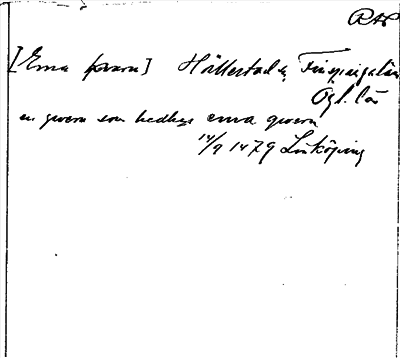 RAP
[Erna kvarn] Hällestad sn, Finspånga län
Ögl. län
en qwern som hedher erna qwern
14/9 1479 Linköping